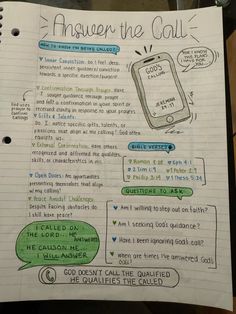 Answer the Call
HOW TO KNOW I'M BEING CALLED?
GOD'S
CALLING...
JEREMIAH
29:11
"FOR I KNOW
THE PLANS I
HAVE FOR
YOU..."
Inner Conviction: Do I feel deep,
persistent inner guidance/conviction
towards a specific direction/purpose?
Confirmation Through Prayer: Have
I sought guidance through prayer
and felt a confirmation in your spirit or
received clarity in response to your prayers
God uses
prayer to
Confirm
Skills & Talents:
Do I notice specific gifts, talents, or
passions that align w/ my calling? God often
equips us
External Confirmation: Have others
recognized and affirmed the qualities,
skills, or characteristics in me.
Open Doors: Are opportunities
presenting themselves that align
w/ my calling?
Peace Amidst Challenges:
Despite facing obstacles do
I still have peace?
BIBLE VERSES
Romans 8:28
Eph 4:1
2 Tim 1:9
1 Peter 2:9
Philip 3:14
1 Thess 5:24
QUESTIONS TO ASK:
Am I willing to step out in faith?
Am I seeking God's guidance?
Have I been ignoring God's call?
When are times I've answered God's
call?
I CALLED ON
THE LORD... HE
ANSWERED
HE CALLS ON ME...
I WILL ANSWER
GOD DOESN'T CALL THE QUALIFIED
HE QUALIFIES THE CALLED